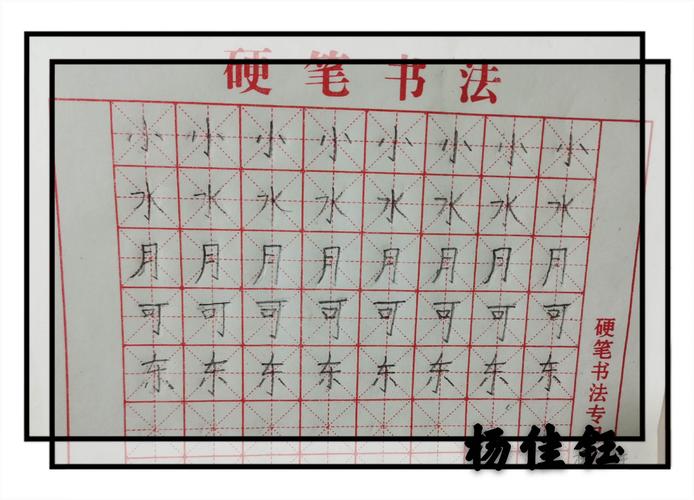 硬笔书法
小小小小小小小小
水水水水水水水水
月月月月月月月月
可可可可可可可可
东东东东东东东东
硬笔书法专
杨佳钰